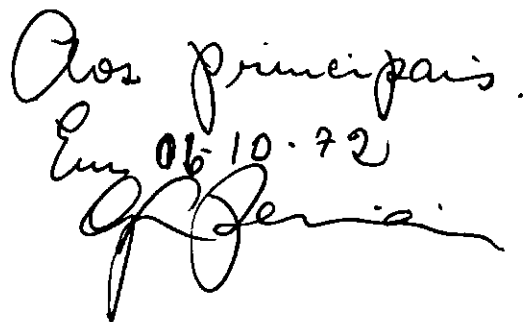 Aos principais.
Em 06-10-72